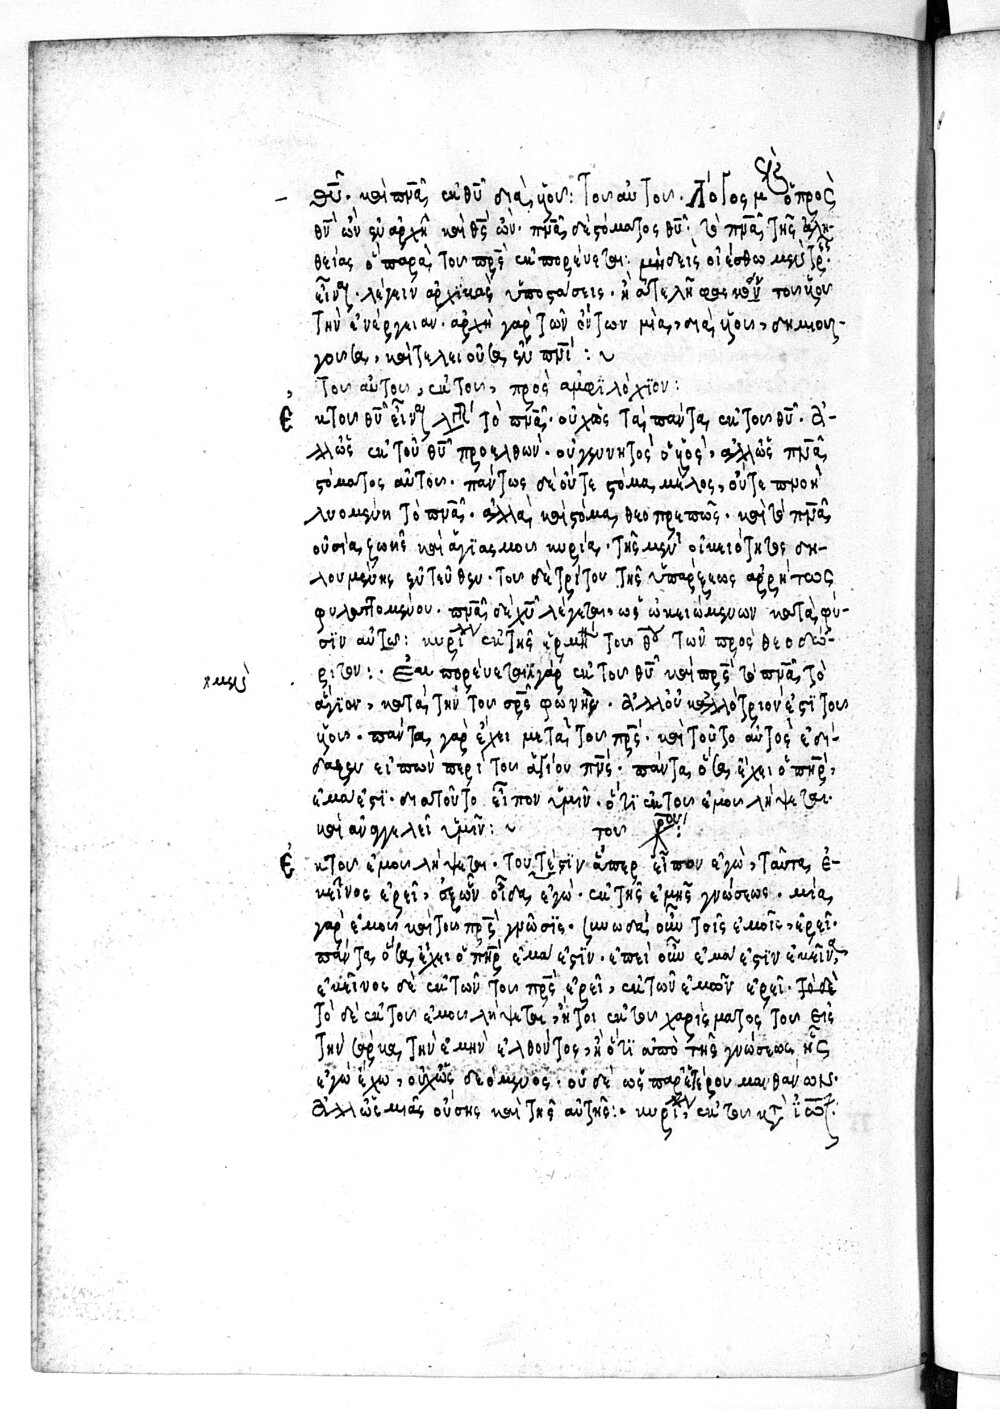 θῡ· καὶ πν̅α ἐκ θῡ διὰ υἱοῦ: Τοῦ αὐτοῦ· Λόγος μὲν ὁ πρὸς
θν̅ ὢν ἐν ἀρχῆ καὶ θς̅ ὤν· πν̅α δὲ στόματος θῡ· τὸ πν̅α τῆς ἀλη-
θείας ὃ παρὰ τοῦ πρς̅ ἐκπορεύεται: μηδεὶς οἰέσθω με τρεῖς
εἶναι λέγειν ἀρχικὰς ὑποστάσεις· ἢ ἀτελῆ φάσκειν τοῦ υἱοῦ
τὴν ἐνέργειαν· ἀρχὴ γὰρ τῶν ὄντων μία, διὰ υἱοῦ, δημιουρ-
γοῦσα, καὶ τελειοῦσα ἐν πνι̅ :~
Τοῦ αὐτοῦ, ἐκ τοῦ, πρὸς ἀμφιλόχιον:
Ἐκ τοῦ θῡ εἶναι λέγεται τὸ πν̅α· οὐχ ὡς τὰ πάντα ἐκ τοῦ θῡ· ἀλ-
λ' ὡς ἐκ τοῦ θῡ προελθών· οὐ γεννητὸς ὁ υἱὸς, ἀλλ' ὡς πν̅α
στόματος αὐτοῦ· πάντως δὲ οὔτε στόμα μέλος, οὔτε πνοὴ
λυομένη τὸ πν̅α· ἀλλὰ καὶ στόμα θεοπρεπῶς· καὶ τὸ πν̅α
οὐσία ζωῆς καὶ ἁγιασμοῦ κυρία· τῆς μὲν οἰκειότητος δη-
λουμένης ἐντεῦθεν· τοῦ δὲ τρόπου τῆς ὑπάρξεως ἀρρήτως
φυλαττομένου· πν̅α δὲ χῡ λέγεται, ὡς ὠκειωμένων κατὰ φύ-
σϊν αὐτῶ: κυρίλλου ἐκ τῆς ἑρμηνείας τοῦ θῡ τῶν πρὸς θεοδώ-
ριτον: Ἐκπορεύεται γὰρ ἐκ τοῦ θῡ καὶ πρς̅ τὸ πν̅α τὸ
ἅγϊον, κατὰ τὴν τοῦ σρ̅ς φωνήν· ἀλλ' οὐκ ἀλλότριόν ἐστϊ τοῦ
υἱοῦ· πάντα γὰρ ἔχει μετὰ τοῦ πρς̅· καὶ τοῦτο αὐτὸς ἐδί-
δαξεν εἰπὼν περὶ τοῦ ἁγίου πνς̅· πάντα ὅσα ἔχει ὁ πη̅ρ,
ἐμά ἐστϊ· διατοῦτο εἶπον ὑμῖν· ὅτϊ ἐκ τοῦ ἐμοῦ λήψεται
καὶ ἀναγγελεῖ ὑμῖν:~ τοῦ χρυ̅:
Ἐκ τοῦ ἐμοῦ λήψεται· Τουτέστϊν ἅπερ εἶπον ἐγὼ, ταῦτα ἐ-
κεῖνος ἐρεῖ, ὅσα οἶδα ἐγώ· ἐκ τῆς ἐμῆς γνώσεως· μία
γὰρ ἐμοῦ καὶ τοῦ πρς̅ γνῶσϊς· συνωδὰ οὖν τοῖς ἐμοῖς, ἐρεῖ·
πάντα ὅσα ἔχει ὁ πη̅ρ ἐμά ἐστϊν· ἐπεὶ οὖν ἐμά ἐστϊν ἐκεῖνα,
ἐκεῖνος δὲ ἐκ τῶν τοῦ πρς̅ ἐρεῖ, ἐκ τῶν ἐμῶν ἐρεῖ· τὸ δὲ
τὸ δὲ ἐκ τοῦ ἐμοῦ λήψεται, ἤτοι ἐκ τοῦ χαρίσματος τοῦ εἰς
τὴν σάρκα τὴν ἐμὴν ἐλθόντος, ἢ ὅτϊ ἀπὸ τῆς γνώσεως ἧς
ἐγὼ ἔχω, οὐχ ὡς δεόμενος· οὐδὲ ὡς παρ' ἑτέρου μανθάνων·
ἀλλ' ὡς μιᾶς οὔσης καὶ τῆς αὐτῆς: κυρίλλου, ἐκ τοῦ κατὰ ϊω̅: